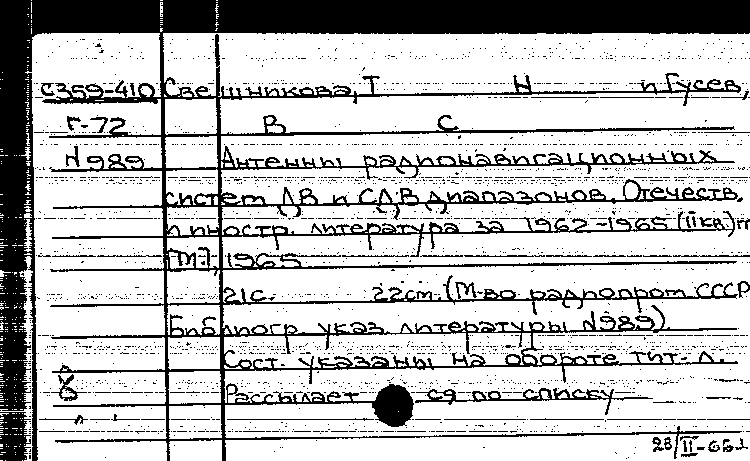 С359-410 Свешникова, Т Н и Гусев,
Г-72 В С
N989 Антенны радионавигационных
систем ДВ и СДВ диапазонов. Отечеств.
и иностр. литература за 1962-1965 (II кв.) гг
[М.], 1965
21с. 22см. (М-во радиопром СССР
Библиогр. указ. литературы N989)
Сост. указаны на обороте тит. л.
Рассылается по списку